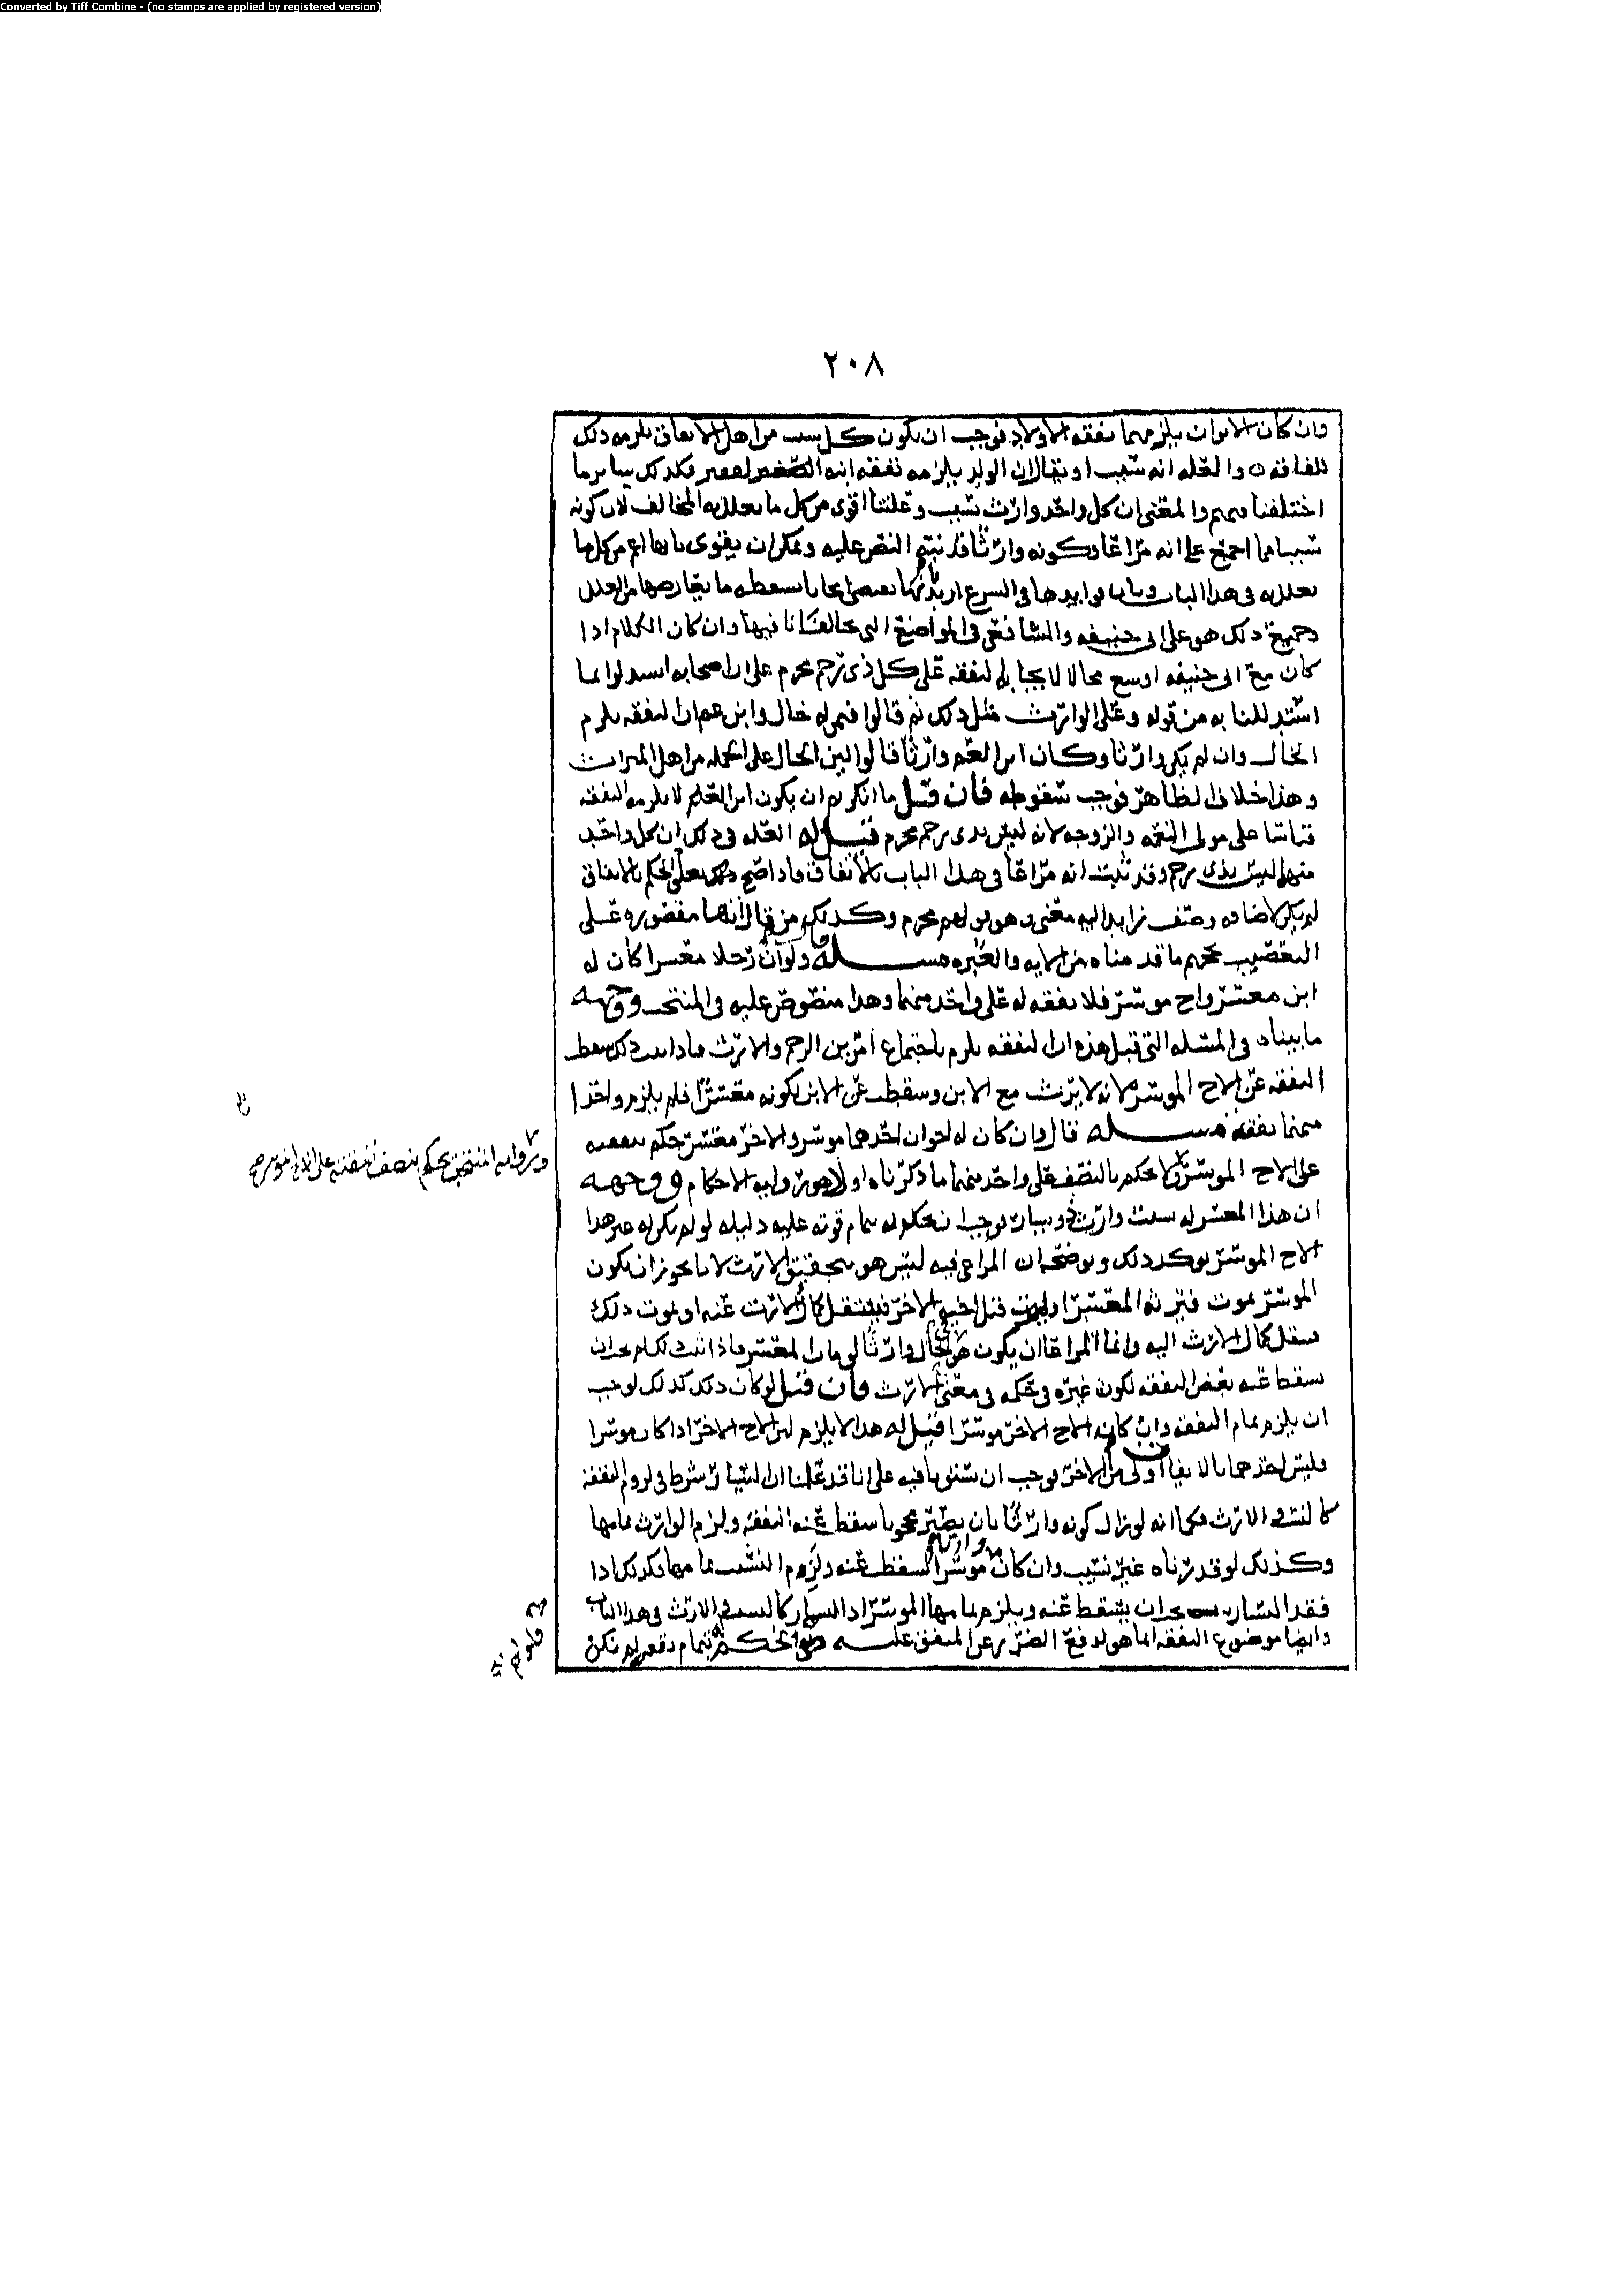 Converted by Tiff Combine - (no stamps are applied by registered version)
٢٠٨
وان كان الابوان يلزمهما نفقه الاولاد فوجب ان يكون كل نسيب من اهل الانفاق يلزمه ذلك
والعله انه نسيب او يقال ان الولد يلزمه نفقه ابيه فكذلك سائر ما
اختلفنا فيهم والمعنى ان كل واحد وارث نسيب وعلتنا اقوى من كل ما يعلل به المخالف لان كونه
نسيبا مما اجمع على انه مراعا وكونه وارثا قد نبه النص عليه ويمكن ان يقوى بانها اعم من كل ما
يعلل به فى هذا الباب وبان فوايدها فى الشرع ازيد وبانها تقتضى ايجابا يسقطه ما يعارضها من العلل
وجميع ذلك هو على ابى حنيفه والشافعى فى المواضع التى خالفنانا فيها وان كان الكلام اذا
كان مع ابى حنيفه اوسع مجالا لايجابه النفقه على كل ذى رحم محرم على ان اصحابه استدلوا بما
استدللنا به من قوله وعلى الوارث مثل ذلك ثم قالوا فيمن له خال وابن عم ان النفقه يلزم
الخال وان لم يكن وارثا وكان ابن العم وارثا قالوا لان الخال على الجمله من اهل الميراث
وهذا خلاف الظاهر فوجب سقوطه فان قيل ما انكرتم ان يكون ابن العم لا يلزمه النفقه
قياسا على مولى النعمه والزوجه لانه ليس بذى رحم محرم قيل له العله فى ذلك ان كل واحد
منهما ليس بذى رحم وقد ثبت انه مراعا فى هذا الباب بالاتفاق فاذا صح ذلك وتعلق الحكم به
لم يكن لاضافه وصف زايد اليه معنى وهو قولهم محرم وكذلك من قال انها مقصوره على
التعصيب يحجه ما قدمناه من الايه والعبره مسله قال ولو ان رجلا معسرا كان له
ابن معسر واخ موسر فلا نفقه له على واحد منهما وهذا منصوص عليه فى المنتخب ووجهه
ما بيناه فى المسله التى قبل هذه ان النفقه يلزم باجتماع امرين الرحم والارث فاذا ثبت ذلك سقط
النفقه عن الاخ الموسر لانه لا يرث مع الابن وسقطت عن الابن لكونه معسرا فلم يلزم واحدا
منهما نفقته مسله قال وان كان له اخوان احدهما موسر والاخر معسر حكم بنفقته
على الاخ الموسر ولا يحكم بالنصف على واحد منهما ما ذكرناه اولا هو روايه الاحكام ووجهه
ان هذا المعسر له نسيب وارث ذو يسار فوجب ان يحكم له بتمام قوته عليه دليله لو لم يكن له غير هذا
الاخ الموسر يوكد ذلك ويوضحه ان المراعى فيه ليس هو تحقيق الارث لانا نجوز ان يكون
الموسر يموت فيرثه المعسر او يموت قبل اخيه الاخر فينتقل كمال الارث عنه او يموت ذلك
فينتقل كمال الارث اليه وانما المراعا ان يكون هو فى الحال وارثا لو مات المعسر فاذا ثبت ذلك لم يجز ان
يسقط عنه بعض النفقه لكون غيره فى حكمه فى معنى الارث فان قيل لو كان ذلك كذلك لوجب
ان يلزم تمام النفقه وان كان الاخ الاخر موسرا قيل له هذا لا يلزم لان الاخ الاخر اذا كان موسرا
فليس احدهما بالانفاق اولى من الاخر فوجب ان يستويا فيه على انا قد علمنا ان اليسار شرط فى لزوم النفقه
كالنسب والارث فكما انه لو زال كونه وارثا بان يصير محجوبا سقط عنه النفقه ولزم الوارث تمامها
وكذلك لو قدرناه غير نسيب وان كان موسرا لسقطت عنه ولزم النسيب تمامها فكذلك اذا
فقد اليسار يجب ان يسقط عنه ويلزم تمامها الموسر اذ اليسار كالنسب والارث فى هذا الباب
وايضا موضوع النفقه انما هو لدفع الضرر عن المنفق عليه ولو لم يحكم له بتمام نفقته لم يكن
وروايه المنتخب يحكم بنصف النفقه على الاخ الموسر صح